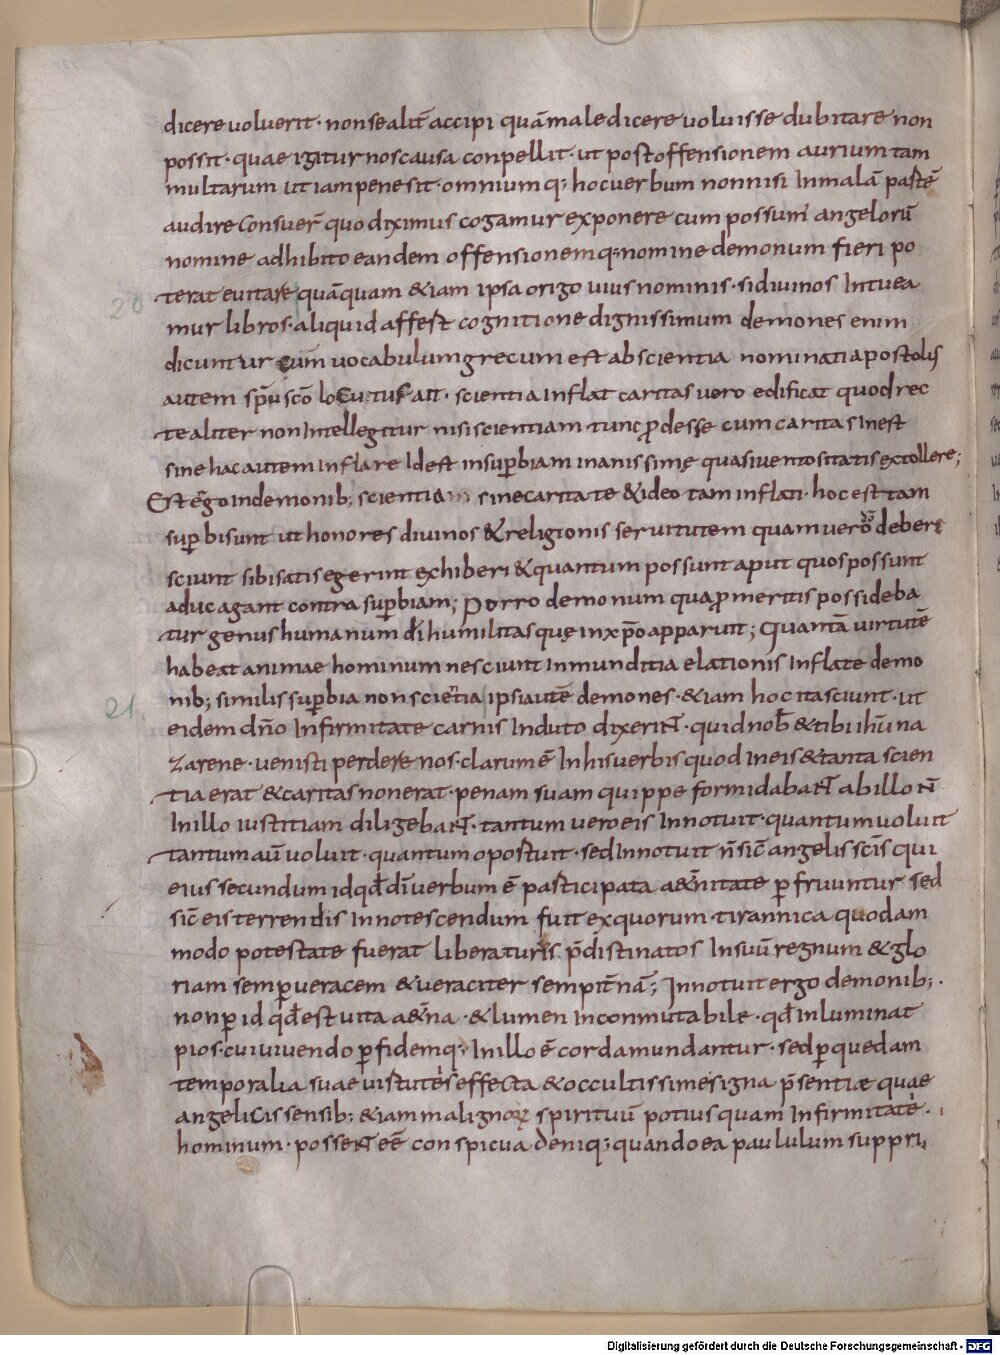 dicere uoluerit · non se alit̄ accipi quā maledicere uoluisse dubitare non
possit · quae igitur nos causa conpellit · ut post offensionem aurium tam
multarum ut iam pene sit · omniumq; hoc uerbum non nisi In malā partē
audire Consuer̄ quod diximus cogamur exponere cum possum̄ angelorū
nomine adhibito eandem offensionemq; nomine demonum fieri po
20 terat euitare quāquam &iam ipsa origo uius nominis · si diuinos Intuea
mur libros · aliquid affert cognitione dignissimum demones enim
dicuntur cum uocabulum grecum est ab scientia nominati apostolis
autem sp̄u sc̄o locutus ait · scientia Inflat caritas uero edificat quod rec
te aliter non Intellegitur nisi scientiam tunc ꝓdesse cum caritas Inest
sine hac autem Inflare Idest in suꝑbiam inanissimę quasi uentositatis extollere;
Est ergo in demonib; scientia sine caritate & ideo tam inflati · hoc est tam
suꝑbi sunt ut honores diuinos & religionis seruitutem quam uero deo deberi
sciunt sibi satis egerint exhiberi & quantum possunt aput quos possunt
aduc agant contra suꝑbiam; Porro demonum qua ꝓ meritis posside ba
tur genus humanum dī humilitas quę in xp̄o apparuit; Quantā uirtutē
habeat animae hominum nesciunt Inmunditia elationis Inflate demo
21. nib; similis suꝑbia non scientia ipsi autē demones · &iam hoc ita sciunt · ut
eidem dn̄o Infirmitate carnis Induto dixerint · quid nob̄ & tibi ih̄u na
zarene · uenisti perdere nos · clarum ē In his uerbis quod In eis & tanta scien
tia erat & caritas non erat · penam suam quippe formidabant ab illo n̄
In illo iustitiam diligebant · tantum uero eis Innotuit · quantum uoluit
tantum aū uoluit · quantum oportuit · sed Innotuit n̄ sic̄ angelis sc̄is qui
eius secundum id qđ dī uerbum ē participata aet̄nitate ꝑfruuntur sed
sic̄ eis terrendis Innotescendum fuit ex quorum · tirannica quodam
modo potestate fuerat liberaturus p̄distinatos In suū regnum & glo
riam semꝑ ueracem & ueraciter sempit̄nā; Innotuit ergo demonib; ·
non ꝑ id qđ est uita aet̄na · & lumen Inconmutabile · qđ Inluminat
pios · cui uiuendo ꝑ fidemq; In illo ē corda mundantur · sed ꝑ quedam
temporalia suae uirtutes effecta & occultissime signa p̄sentiæ quae
angelicis sensib; &iam malignoꝝ spirituū potius quam Infirmitate ·
hominum · possent eē conspicua deniq; quando ea paululum suppri,
Digitalisierung gefördert durch die Deutsche Forschungsgemeinschaft - DFG